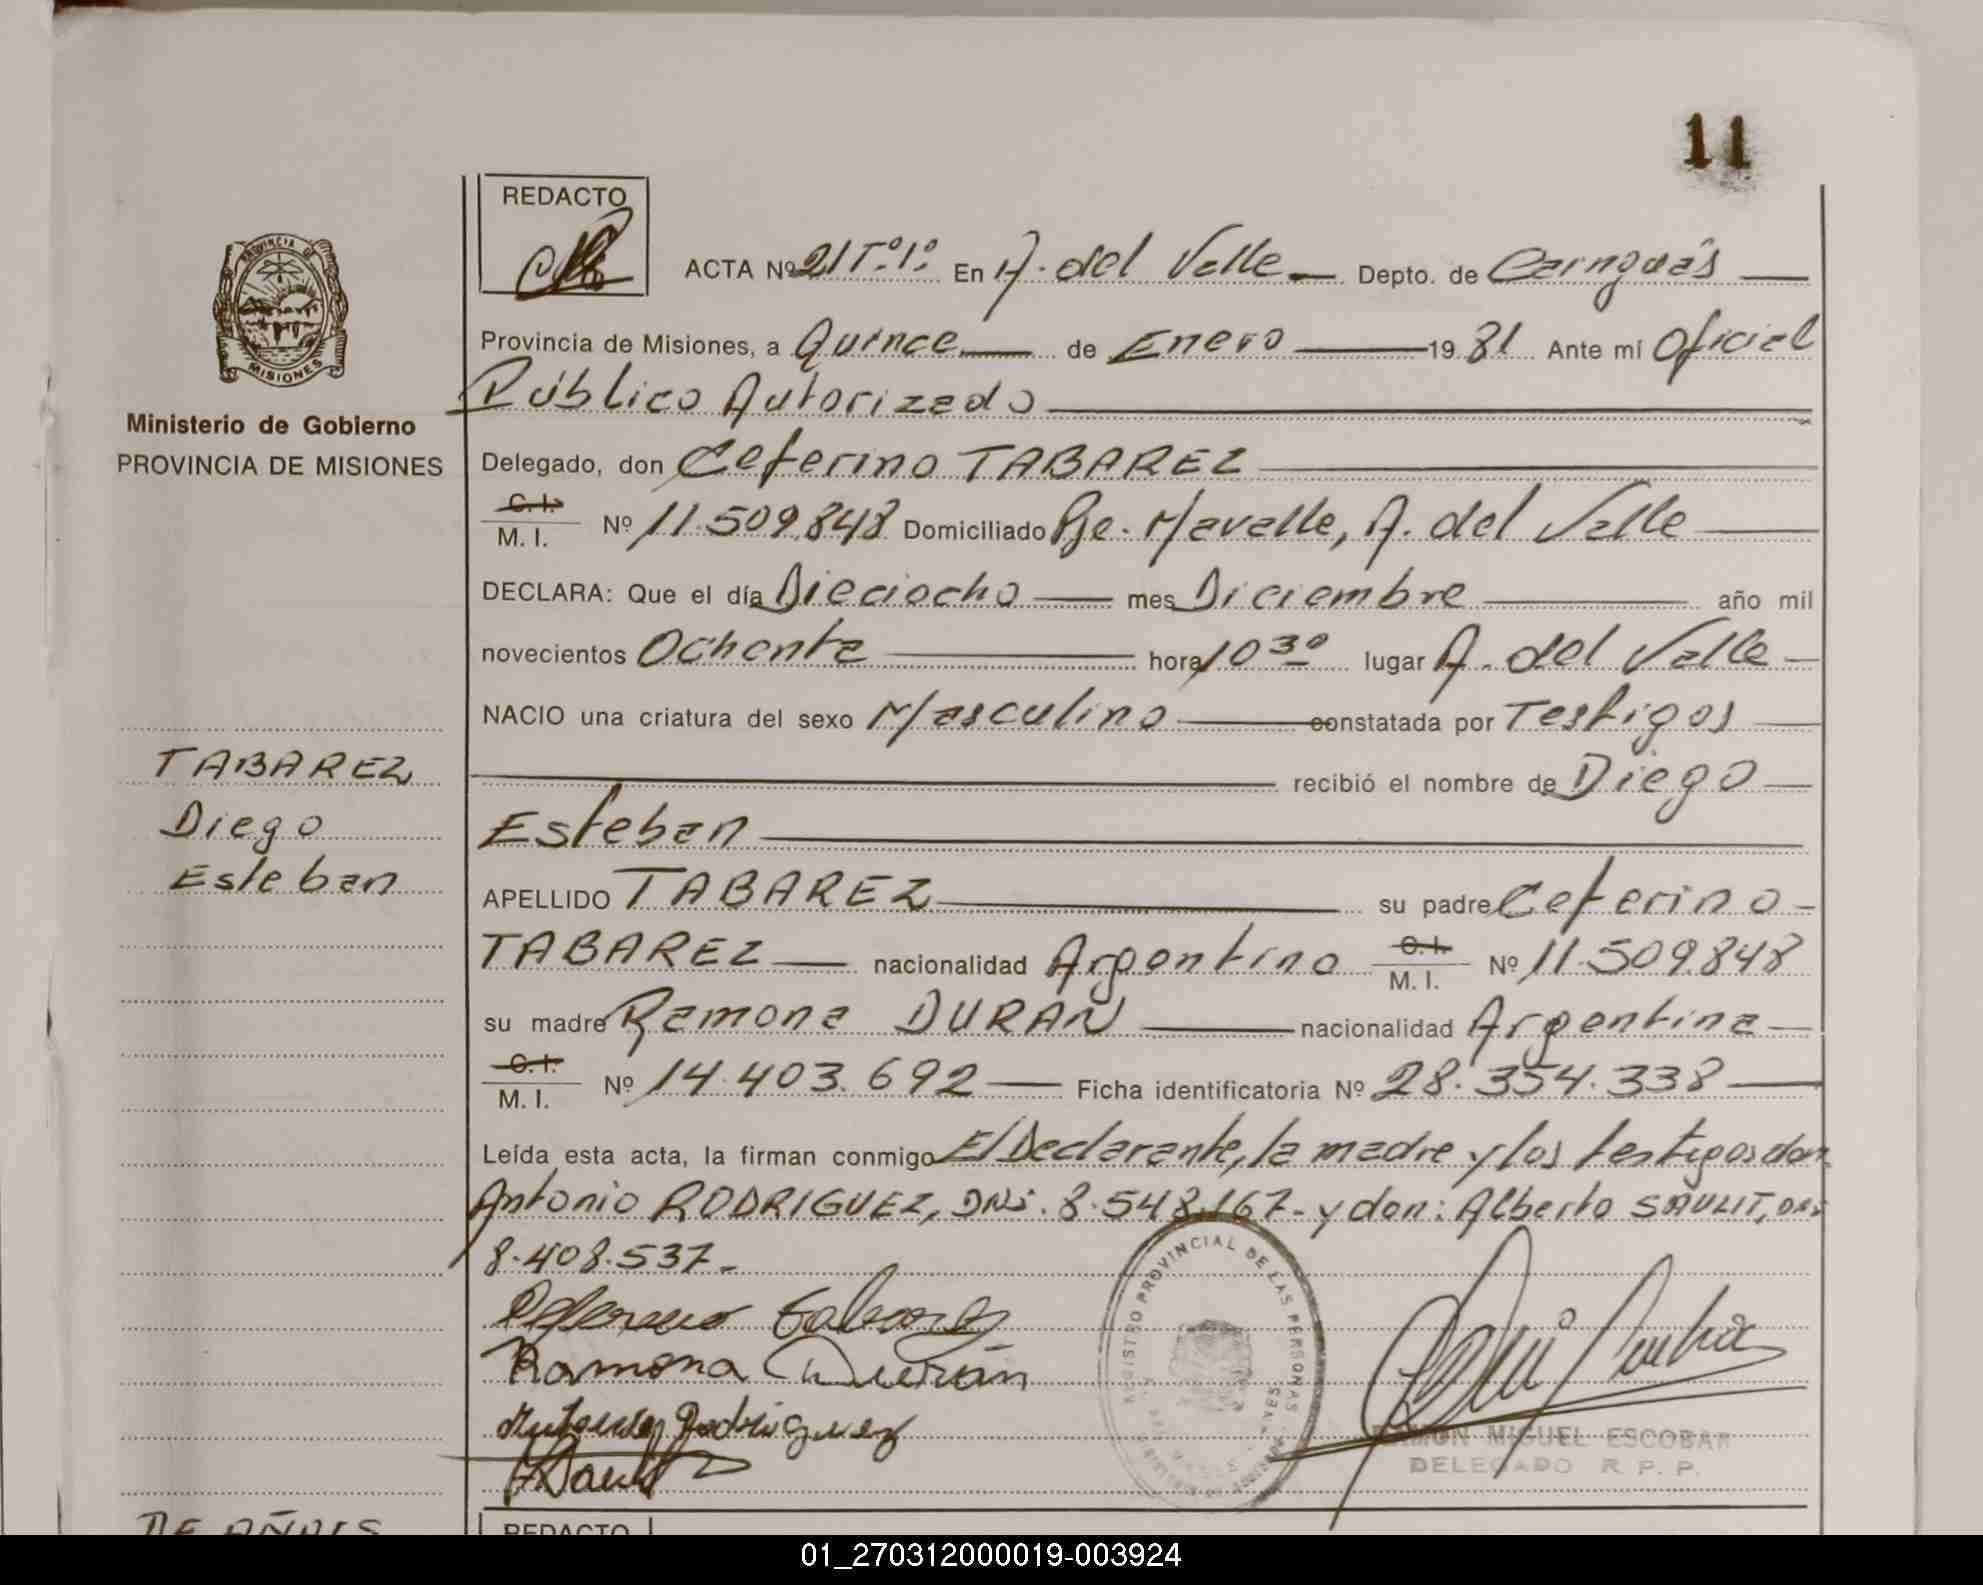 11
REDACTO
PROVINCIA DE
MISIONES
ACTA Nº 21 Tº.1º En A. del Valle Depto. de Cainguás
Provincia de Misiones, a Quince de Enero 1981 Ante mí Oficial
Público Autorizado
Ministerio de Gobierno
PROVINCIA DE MISIONES
Delegado, don Ceferino TABAREZ
C. I.
M. I. Nº 11.509.848 Domiciliado Pje. Mavalle, A. del Valle
DECLARA: Que el día Dieciocho mes Diciembre año mil
novecientos Ochenta hora 10 30 lugar A. del Valle
NACIO una criatura del sexo Masculino constatada por Testigos
recibió el nombre de Diego
Esteban
TABAREZ
Diego
Esteban
APELLIDO TABAREZ su padre Ceferino
TABAREZ nacionalidad Argentino C. I. M. I. Nº 11.509.848
su madre Ramona DURAN nacionalidad Argentina
C. I.
M. I. Nº 14.403.692 Ficha identificatoria Nº 28.354.338
Leída esta acta, la firman conmigo El Declarante, la madre y los testigos don
Antonio RODRIGUEZ, DNi. 8.548.167.- y don: Alberto SAULIT, DNi
8.408.537.-
Ramona Durán
Antonio Rodriguez
REGISTRO PROVINCIAL DE LAS PERSONAS
RAMON MIGUEL ESCOBAR
DELEGADO R. P. P.
REDACTO
01_270312000019-003924